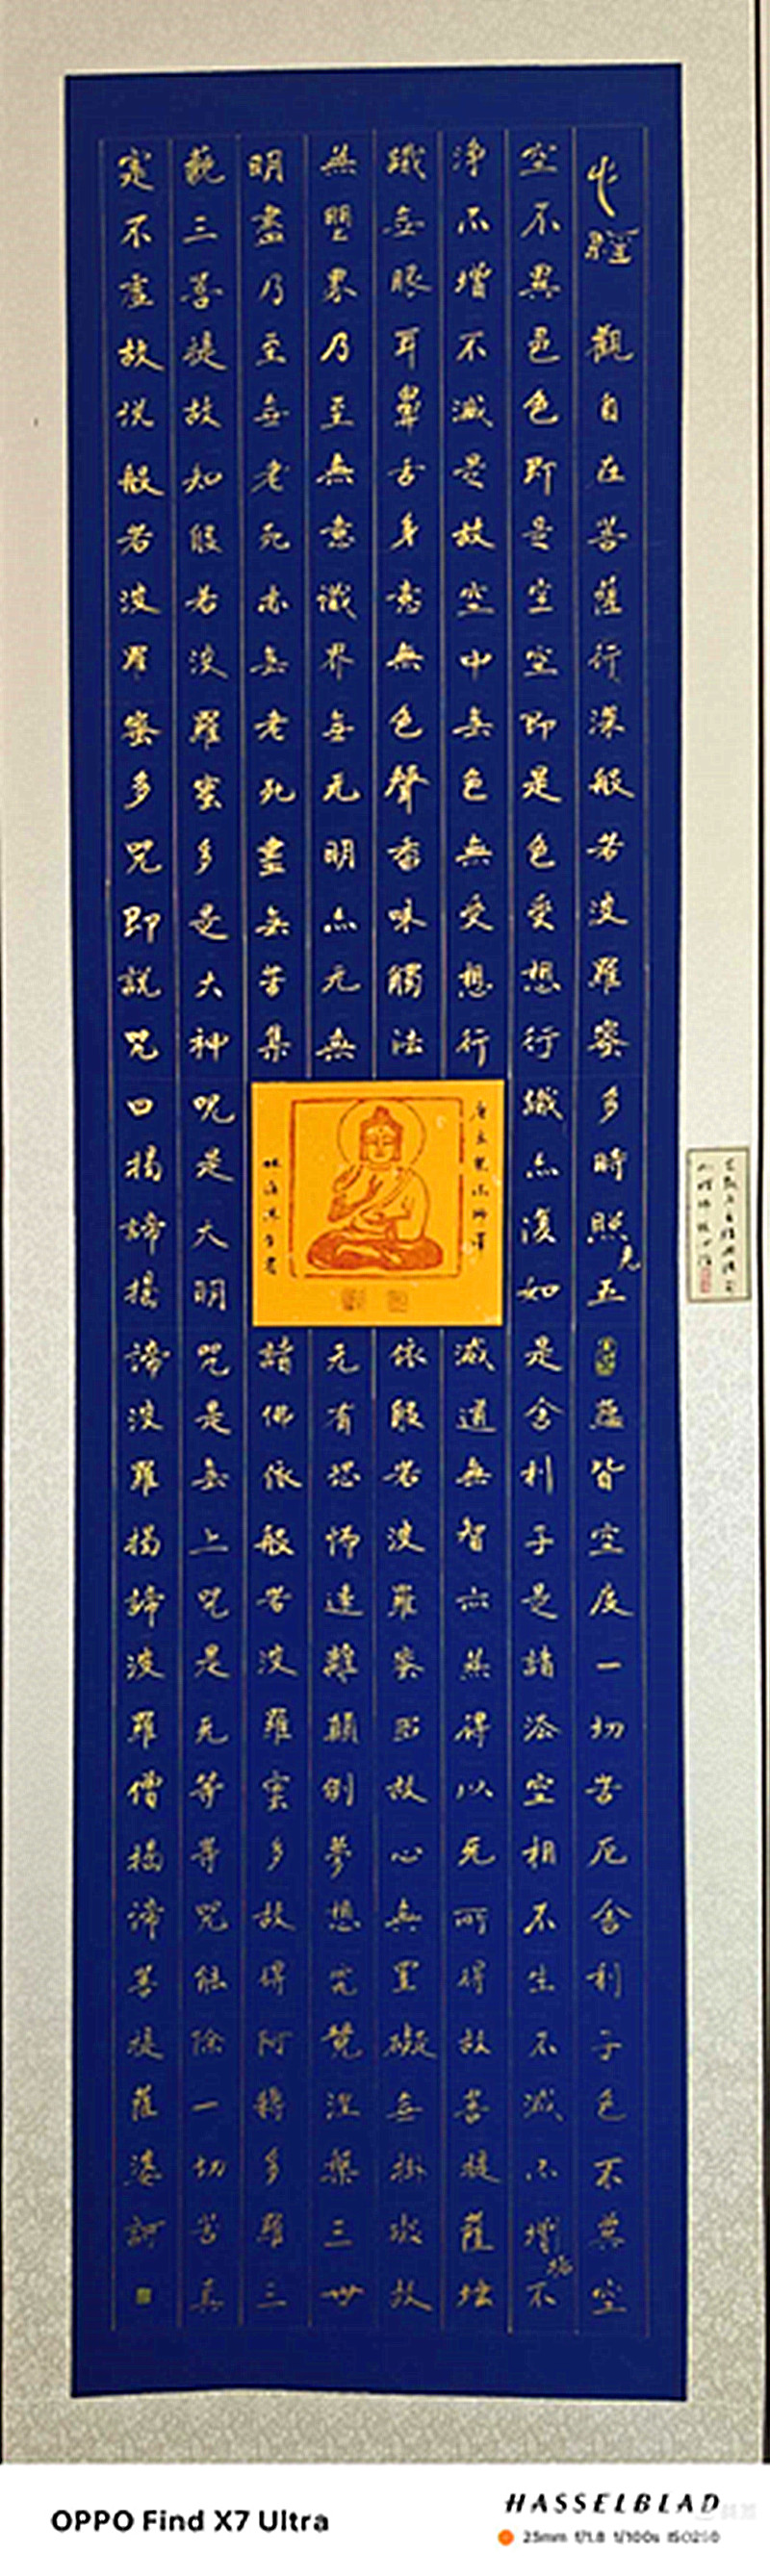 心經 觀自在菩薩行深般若波羅蜜多時照見五蘊皆空度一切苦厄舍利子色不異空
空不異色色即是空空即是色受想行識亦復如是舍利子是諸法空相不生不滅不增垢不
淨不增不減是故空中無色無受想行
識無眼耳鼻舌身意無色聲香味觸法
無眼界乃至無意識界無无明亦无無
明盡乃至無老死亦無老死盡無苦集
滅道無智亦無得以无所得故菩提薩埵
依般若波羅蜜多故心無罣礙無掛礙故
无有恐怖遠離顛倒夢想究竟涅槃三世
諸佛依般若波羅蜜多故得阿耨多羅三
藐三菩提故知般若波羅蜜多是大神呪是大明咒是無上咒是无等等咒能除一切苦真
實不虛故说般若波羅蜜多咒即說咒曰揭諦揭諦波羅揭諦波羅僧揭諦菩提薩婆訶
OPPO Find X7 Ultra
HASSELBLAD
23mm f/1.8 1/100s ISO250